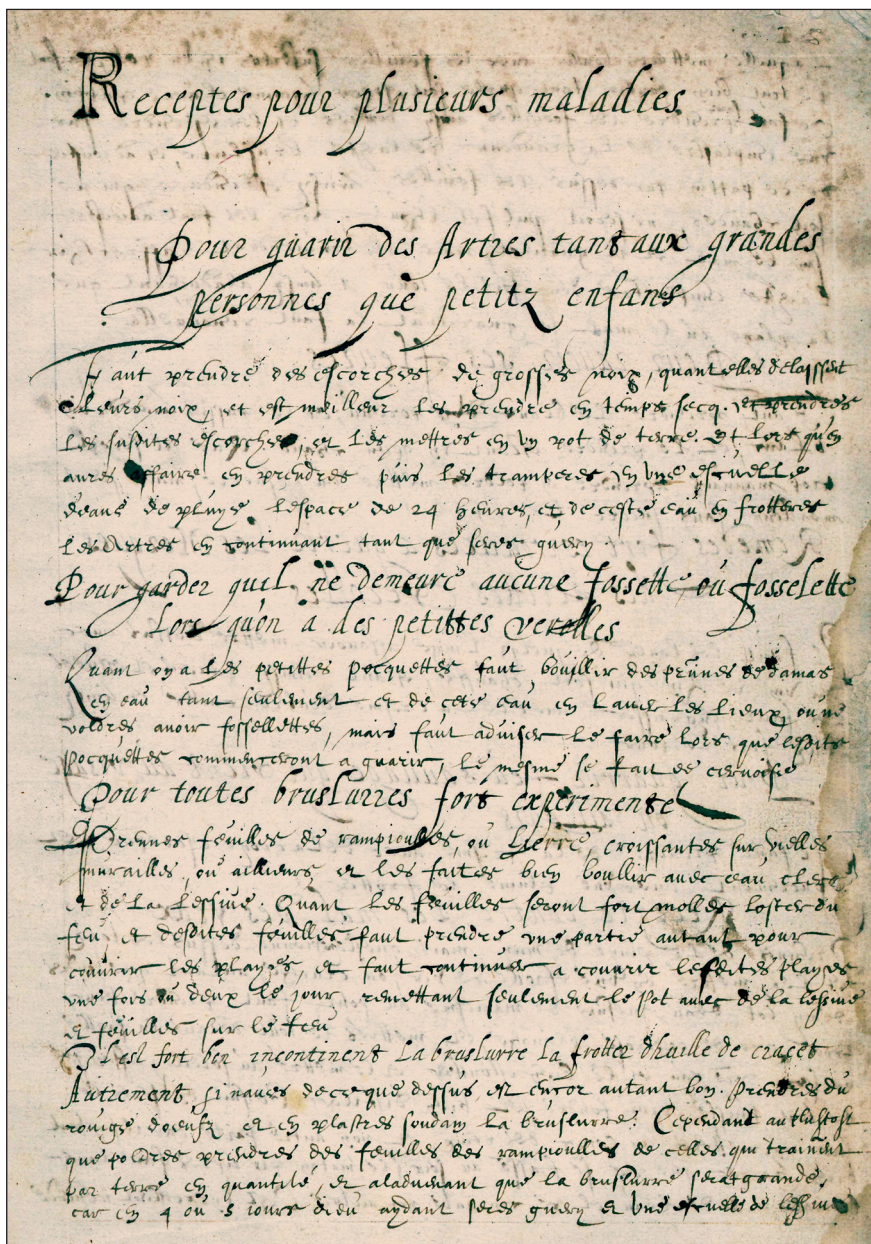 Receptes pour plusieurs maladies
Pour guarir des Artres tant aux grandes
personnes que petitz enfans
Faut prendre des escorches de grosses noix, quant elles delaissent
leurs noix, et est meilleur les prendre en temps secq. et prendres
les susdites escorches, et les mettres en vn pot de terre. Et lors qu'en
aures affaire en prendres puis les tramperes en vne escuelle
deaue de pluye lespace de 24 heures, et de ceste eau en frotteres
les Artres en continuant tant que seres guery.
Pour garder quil ne demeure aucune fossette, ou fosselette
Lors qu'on a des petittes verolles
Quant on a les petittes pocquettes faut bouillir des prunes de damas
en eau tant seulement et de cete eau en laver les lieux, ou ne
voldres auoir fossellettes, mais faut aduiser le faire lors que lesdits
pocquettes commenceront a guarir, le mesme se fait de ceruoise
Pour toutes bruslurres fort experimente
Prennes feuilles de rampioulles, ou Lierre, croissantes sur vielles
murailles, ou aillieurs, et les faites bien boullir avec eau clere
et de la lessiue. Quant les feuilles seront fort molles loster du
feu, et desdites feuilles faut prendre vne partie autant pour
couurir les playes, et faut continuer a couurir lesdites playes
vne fois ou deux le jour remettant seulement le pot auec de la lessiue
et feuilles sur le feu
Il est fort bon incontinent la bruslurre la frotter dhuille de cracet
Autrement si naues de ce que dessus est encor autant bon. Prendres du
rouige doeufz et en plastres soudain la bruslurre. Cependant au plustost
que poldres prendres des feuilles des rampioulles de celles qui trainent
par terre en quantité, et aladuenant que la bruslurre serat grande,
car en 4 ou 5 iours dieu aydant seres guery et vne escuelle de lessiue